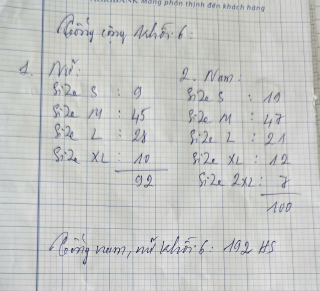 mang phồn thịnh đến khách hàng
Tổng cộng khối 6:
1. Nữ:
Size S : 9
Size M : 45
Size L : 28
Size XL : 10
92
2. Nam:
Size S : 19
Size M : 47
Size L : 21
Size XL : 12
Size 2XL: 7
100
Cộng nam, nữ khối 6: 192 HS